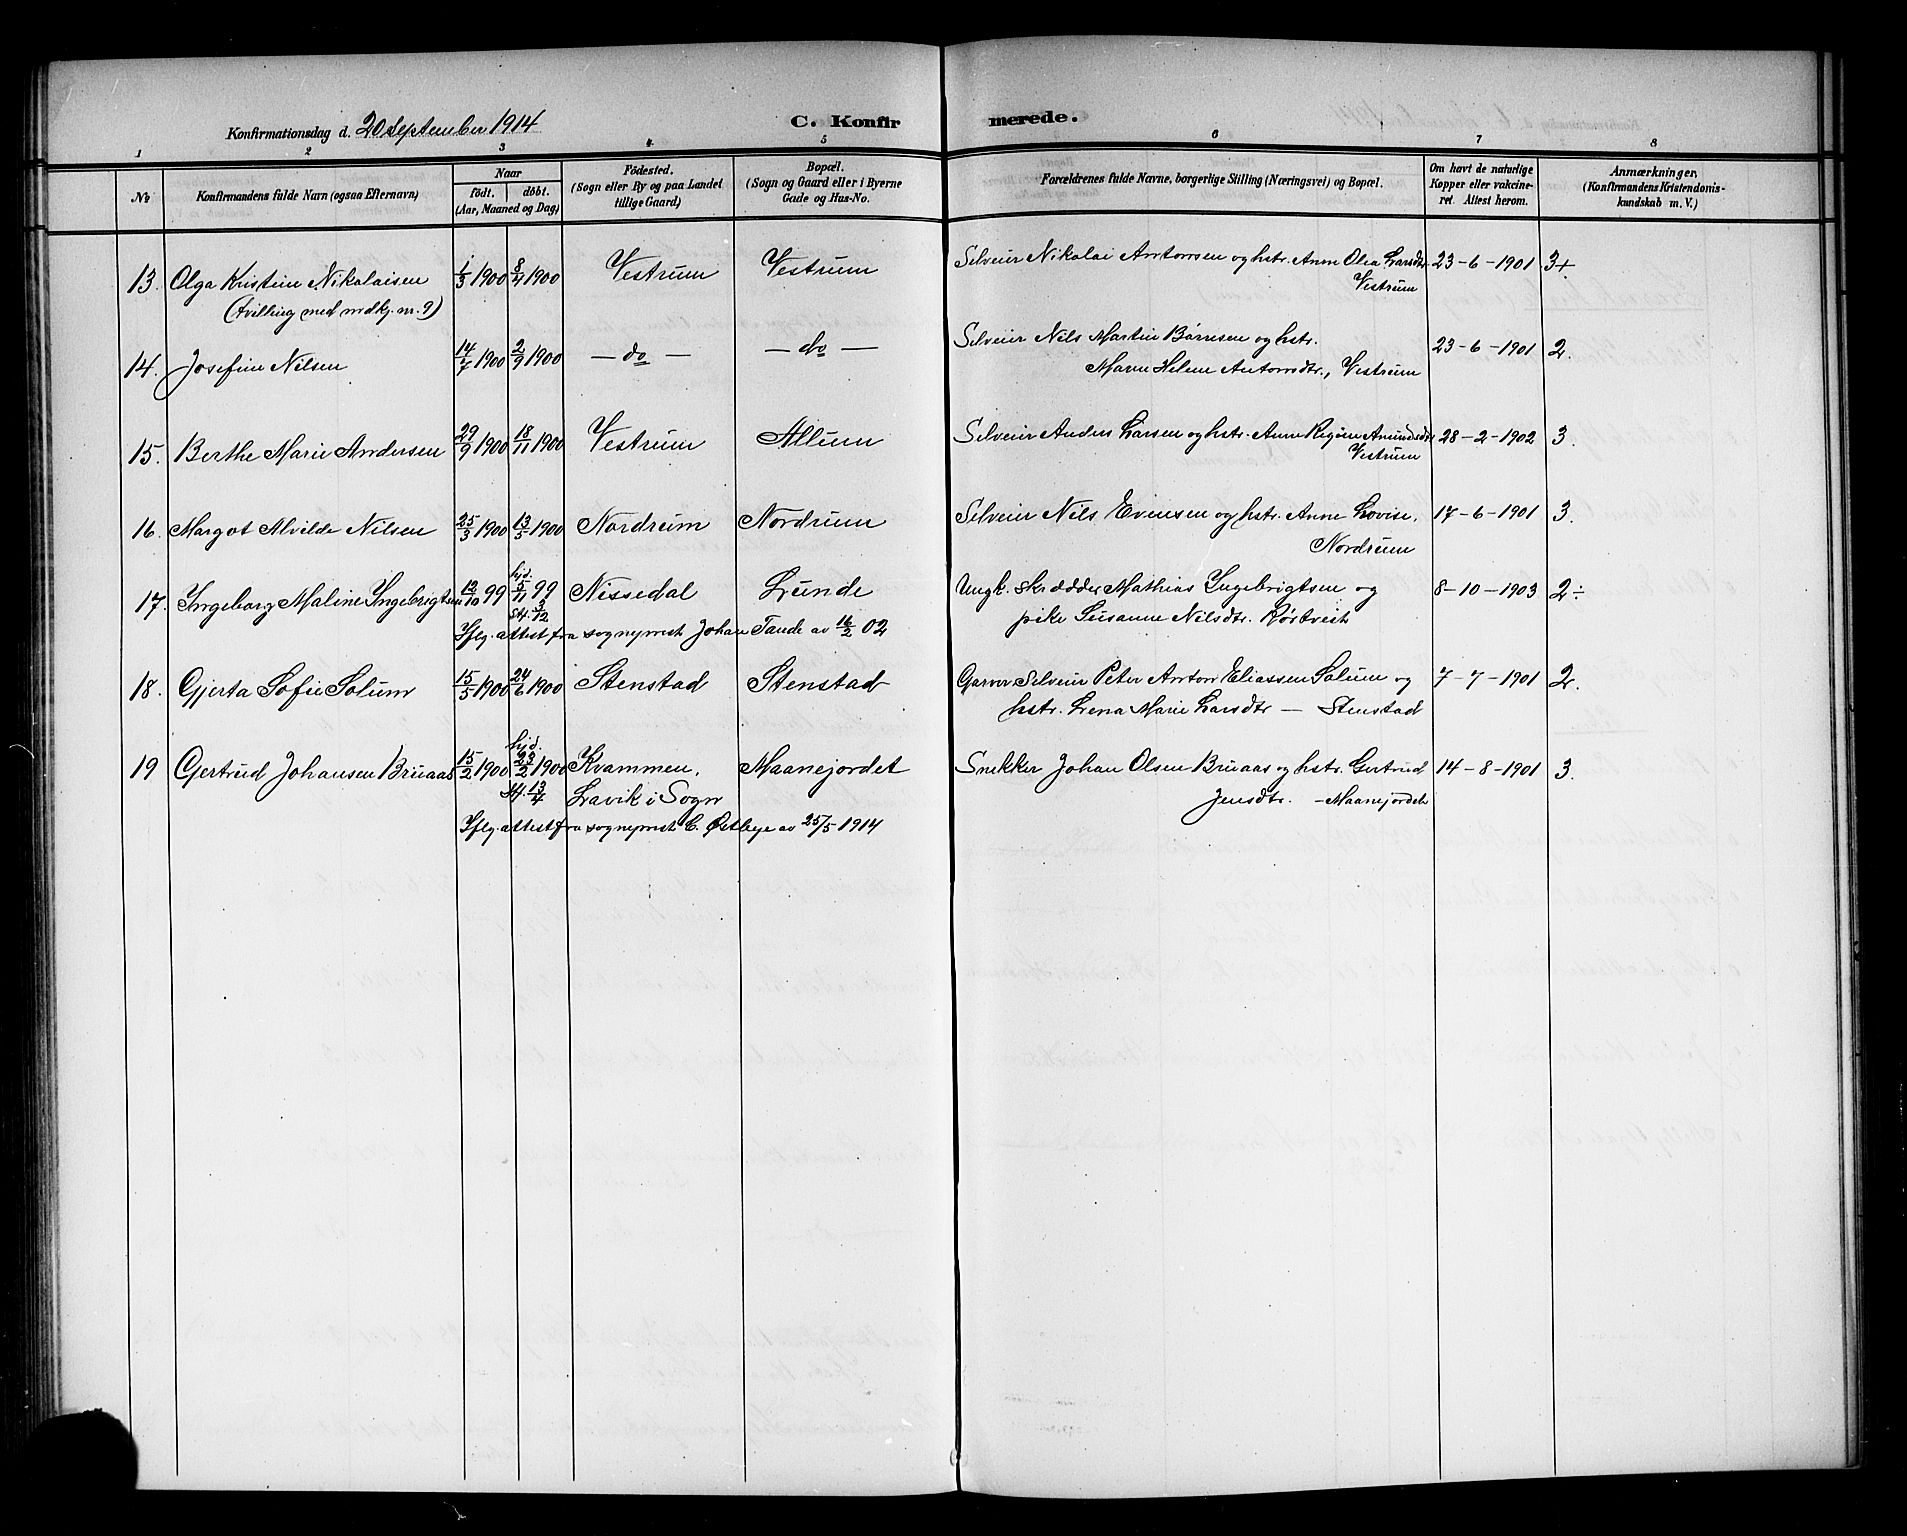 Konfirmationsdag d. 20 September 1914
C. Konfirmerede.
1 2 3 4 5 6 7 8
No. Konfirmandens fulde Navn (ogsaa Efternavn) Naar født. døbt. (Aar, Maaned og Dag) Födested. (Sogn eller By og paa Landet tillige Gaard) Bopæl. (Sogn og Gaard eller i Byerne Gade og Hus-No. Forældrenes fulde Navne, borgerlige Stilling (Næringsvei) og Bopæl. Om havt de naturlige Kopper eller vakcineret. Attest herom. Anmærkninger. (Konfirmandens Kristendomskundskab m. V.)
13. Olga Kristine Nikolaisen 1/3 1900 8/4 1900 Vestrum Vestrum Selveier Nikolai Antonsen og hstr. Anne Olea Larsdtr. 23-6-1901 3+
(tvilling med mdkj. nr. 9) Vestrum
14. Josefine Nilsen 14/7 1900 2/9 1900 - do - - do - Selveier Nils Martin Børresen og hstr. 23-6-1901 2.
Maren Helene Antonsdtr., Vestrum
15. Berthe Marie Andersen 29/9 1900 18/11 1900 Vestrum Allum Selveier Anders Larsen og hstr. Anne Amundsdtr 28-2-1902 3.
Vestrum
16. Margot Alvilde Nilsen 25/3 1900 13/5 1900 Nordrum Nordrum Selveier Nils Evensen og hstr. Anne Lovise, 17-6-1901 3.
Nordrum
17. Ingeborg Maline Ingebrigtsen 12/10 99 hjd. 5/11 99 Nissedal Lunde Ungk. Skrædder Mathias Ingebrigtsen og 8-10-1903 2÷
St. 3/12 pike Susanne Nilsdtr. Kørkvest
Iflg. attest fra sogneprest Johan Tande av 16/2 02
18. Gjerta Sofie Solum 15/5 1900 24/6 1900 Stenstad Stenstad Garver Selveier Peter Anton Eliassen Solum og 7-7-1901 2.
hstr. Lena Marie Larsdtr - Stenstad
19 Gertrud Johansen Bruaas 15/2 1900 hjd. 23/2 1900 Kvammen, Maanejordet Snekker Johan Olsen Bruaas og hstr. Gertrud 14-8-1901 3.
St. 13/4 Lavik i Sogn Jensdtr. - Maanejordet
Iflg. attest fra sogneprest C. Østbye av 25/5 1914